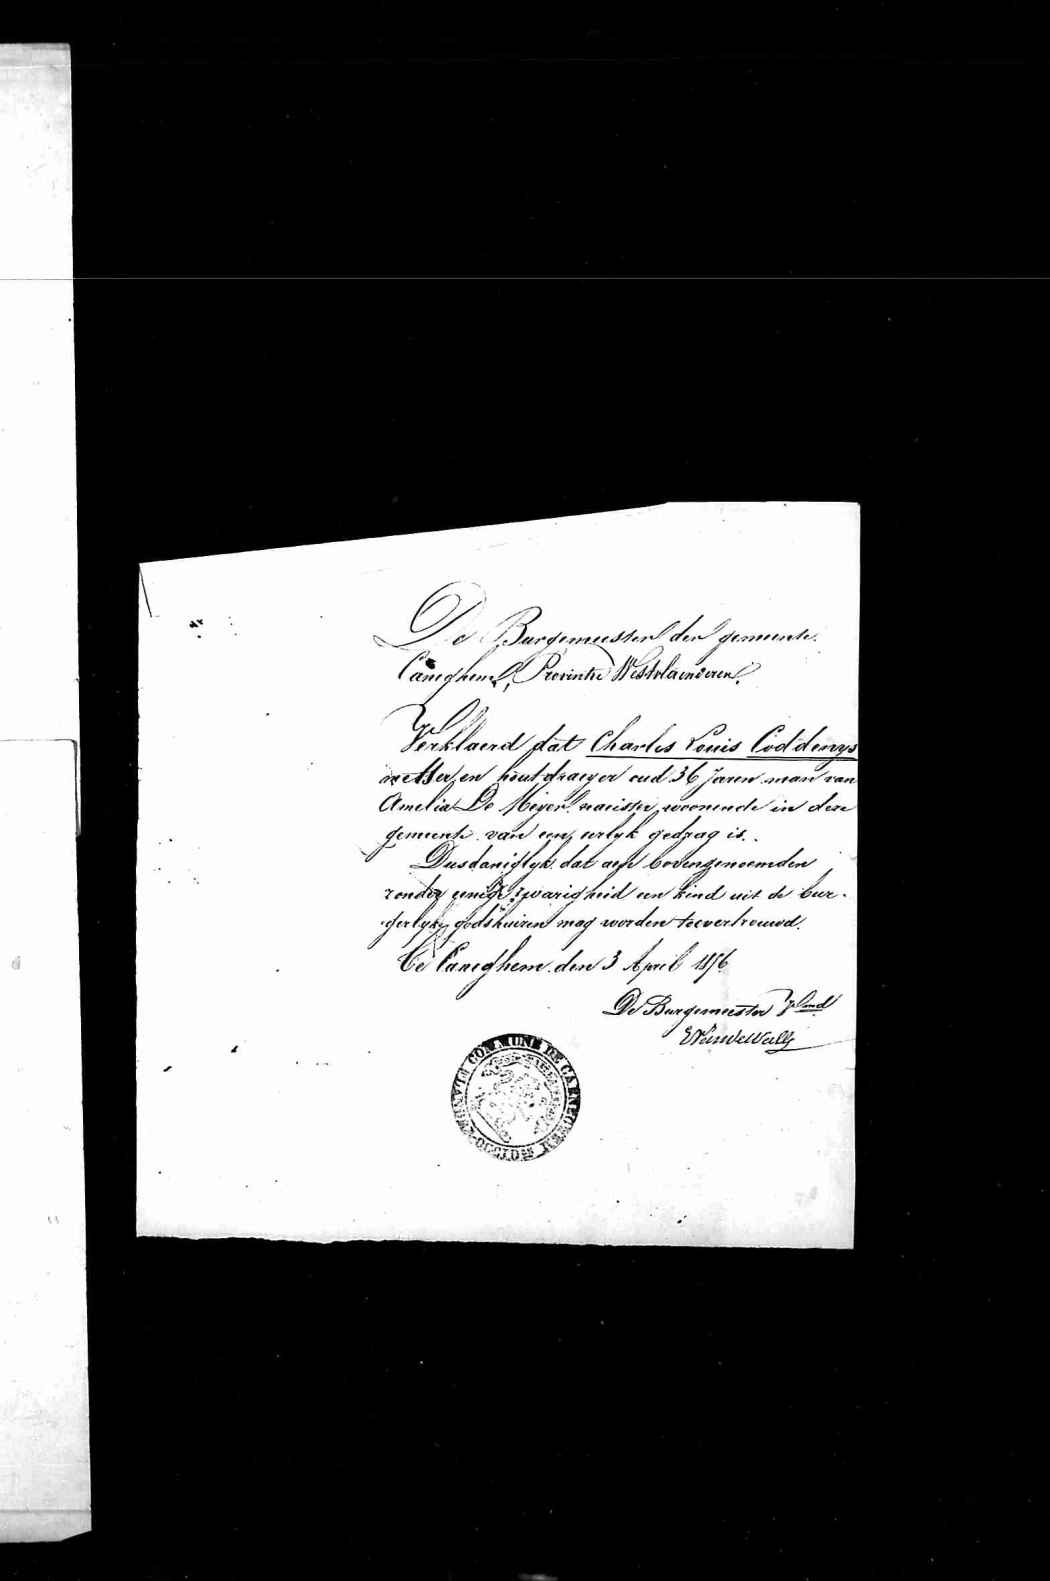 De Burgemeester der gemeente
Caneghem, Provintie Westvlaenderen.
Verklaerd dat Charles Louis Coddenys
metser en houtdraeger oud 36 Jaren man van
Amelia De Meyer naeister woonende in deze
gemeente van een eerlyk gedrag is.
Dusdaniglyk dat aen bovengenoemden
zonder eenige zwarigheid een kind uit de bur-
gerlyke godshuizen mag worden toevertrouwd.
Te Caneghem den 3 April 1856
De Burgemeester
COMMUNE DE CANEGHEM
FLANDRE OCCID